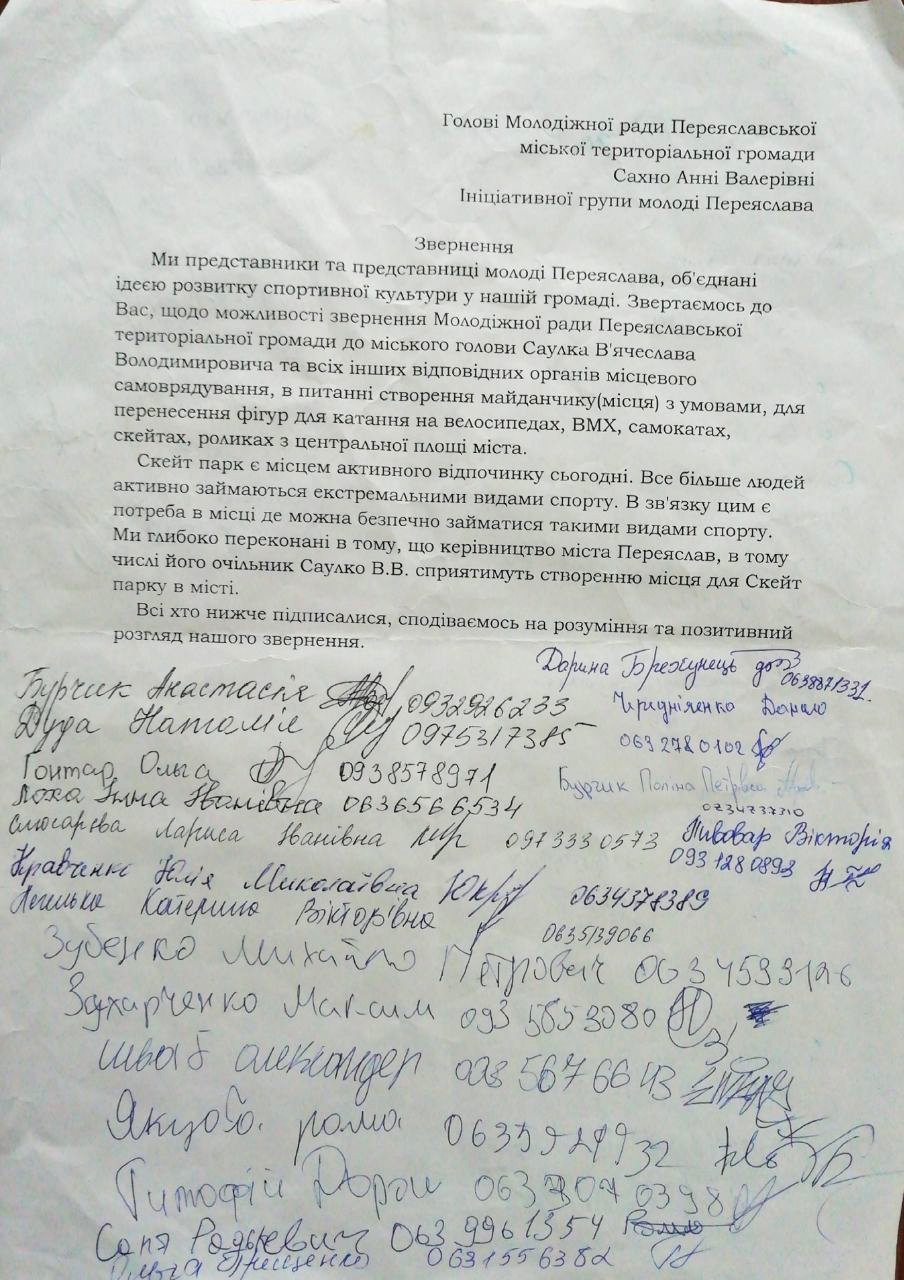 Голові Молодіжної ради Переяславської
міської територіальної громади
Сахно Анні Валерівні
Ініціативної групи молоді Переяслава
Звернення
Ми представники та представниці молоді Переяслава, об'єднані
ідеєю розвитку спортивної культури у нашій громаді. Звертаємось до
Вас, щодо можливості звернення Молодіжної ради Переяславської
територіальної громади до міського голови Саулка В'ячеслава
Володимировича та всіх інших відповідних органів місцевого
самоврядування, в питанні створення майданчику(місця) з умовами, для
перенесення фігур для катання на велосипедах, ВМХ, самокатах,
скейтах, роликах з центральної площі міста.
Скейт парк є місцем активного відпочинку сьогодні. Все більше людей
активно займаються екстремальними видами спорту. В зв'язку цим є
потреба в місці де можна безпечно займатися такими видами спорту.
Ми глибоко переконані в тому, що керівництво міста Переяслав, в тому
числі його очільник Саулко В.В. сприятимуть створенню місця для Скейт
парку в місті.
Всі хто нижче підписалися, сподіваємось на розуміння та позитивний
розгляд нашого звернення.
Дарина Брехунець
0638871331
Бурчик Анастасія 0932926233
Дуда Наталія 0975317385
Данило
0632780102
Гонтар Ольга 0938578971
Бурчик Поліна Петрівна
Лоха Інна Іванівна 0636566534
Слюсарєва Лариса Іванівна 0973330573
Пивовар Вікторія
0931280893
Кравченко Юлія Миколаївна 0634378389
Катерина Вікторівна
0635139066
Зубенко Михайло Петрович 0634533126
Захарченко Максим 093 5853080
Шваб олександер
Якуба рома
Тимофій
Соня Радкевич 0639961354
Ольга 0631556382